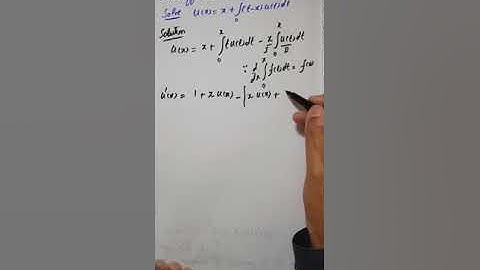 Solve u(x) = x + ∫₀ˣ (t-x) u(t) dt
Solution
u(x) = x + ∫₀ˣ t u(t) dt - x ∫₀ˣ u(t) dt
∵ d/dx ∫₀ˣ f(t) dt = f(x)
u'(x) = 1 + x u(x) - [x u(x) +